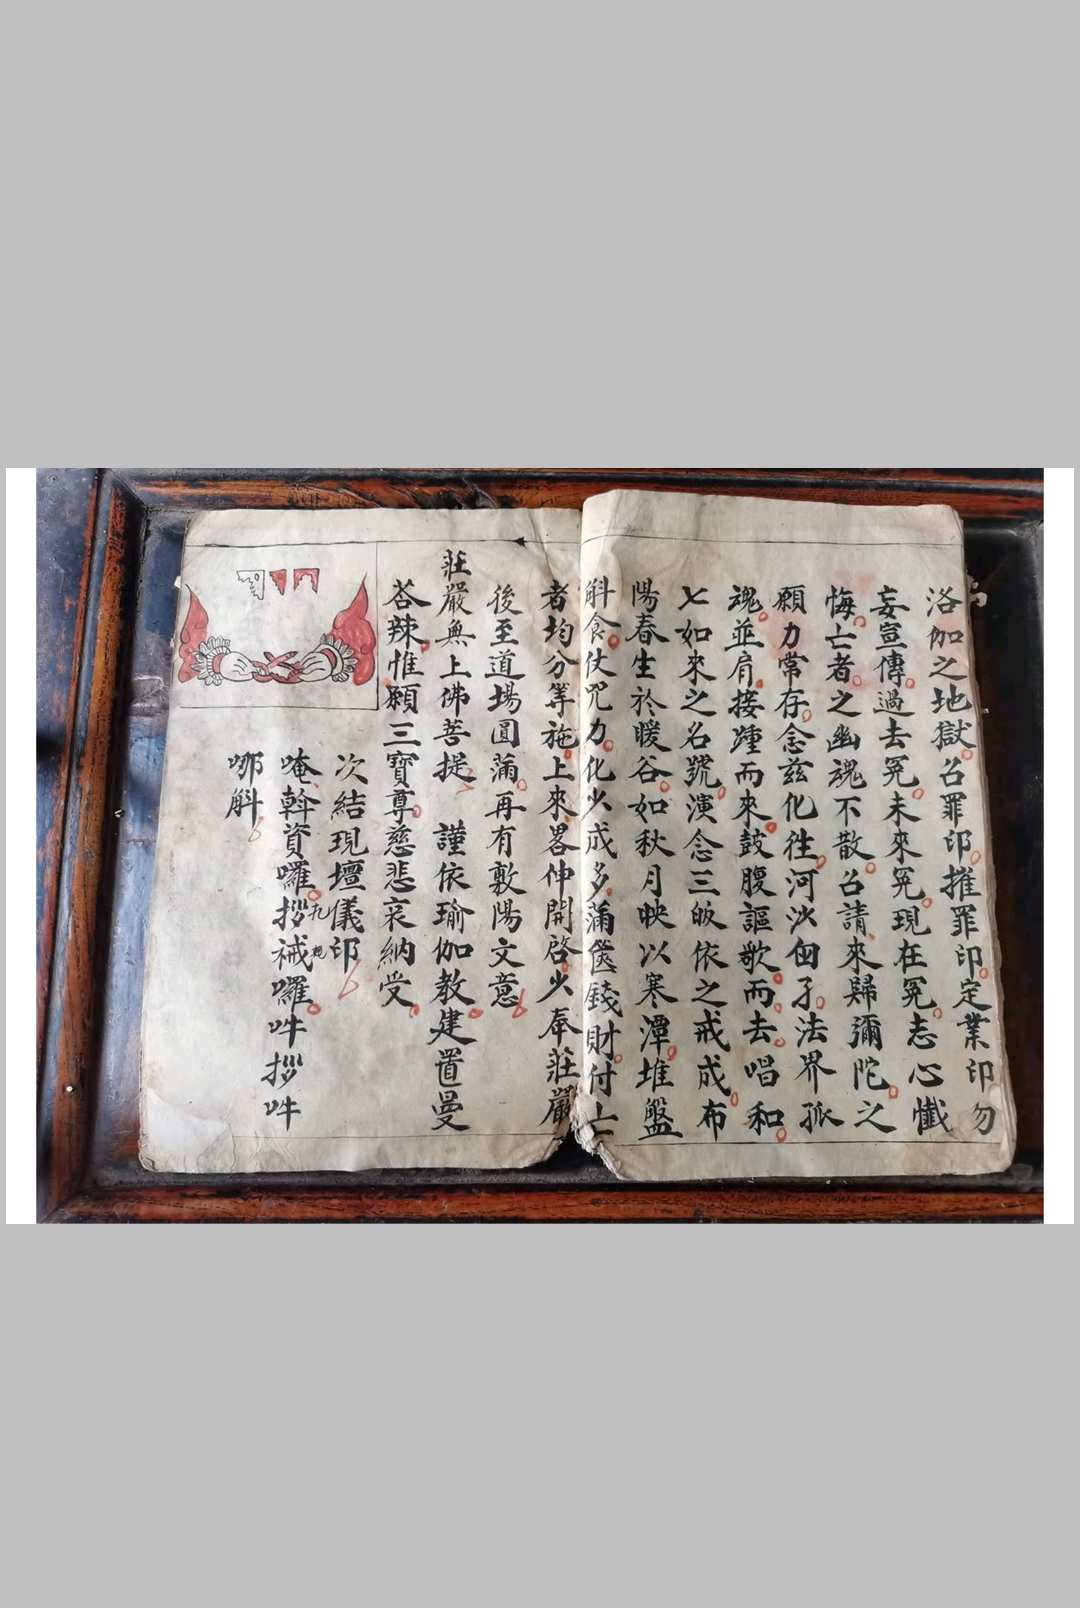 洛伽之地獄召罪印摧罪印定業印勿
妄宣傳過去冤未來冤現在冤志心懺
悔亡者之幽魂不散召請來歸彌陀之
願力常存念茲化往河沙囬孑法界孤
魂並肩接踵而來鼓腹謳歌而去唱和
七如來之名號演念三皈依之戒成布
陽春生於暖谷如秋月映以寒潭堆盤
斛食仗咒力化少成多滿篋錢財付亡
者均分等施上來畧伸開啓火奉莊嚴
後至道場圓滿再有敷陽文意
莊嚴無上佛菩提 謹依瑜伽教建置曼
荅辣惟願三寶尊慈悲哀納受
次結現壇儀印
唵斡資囉拶祴囉吽拶吽
九想
哪斛